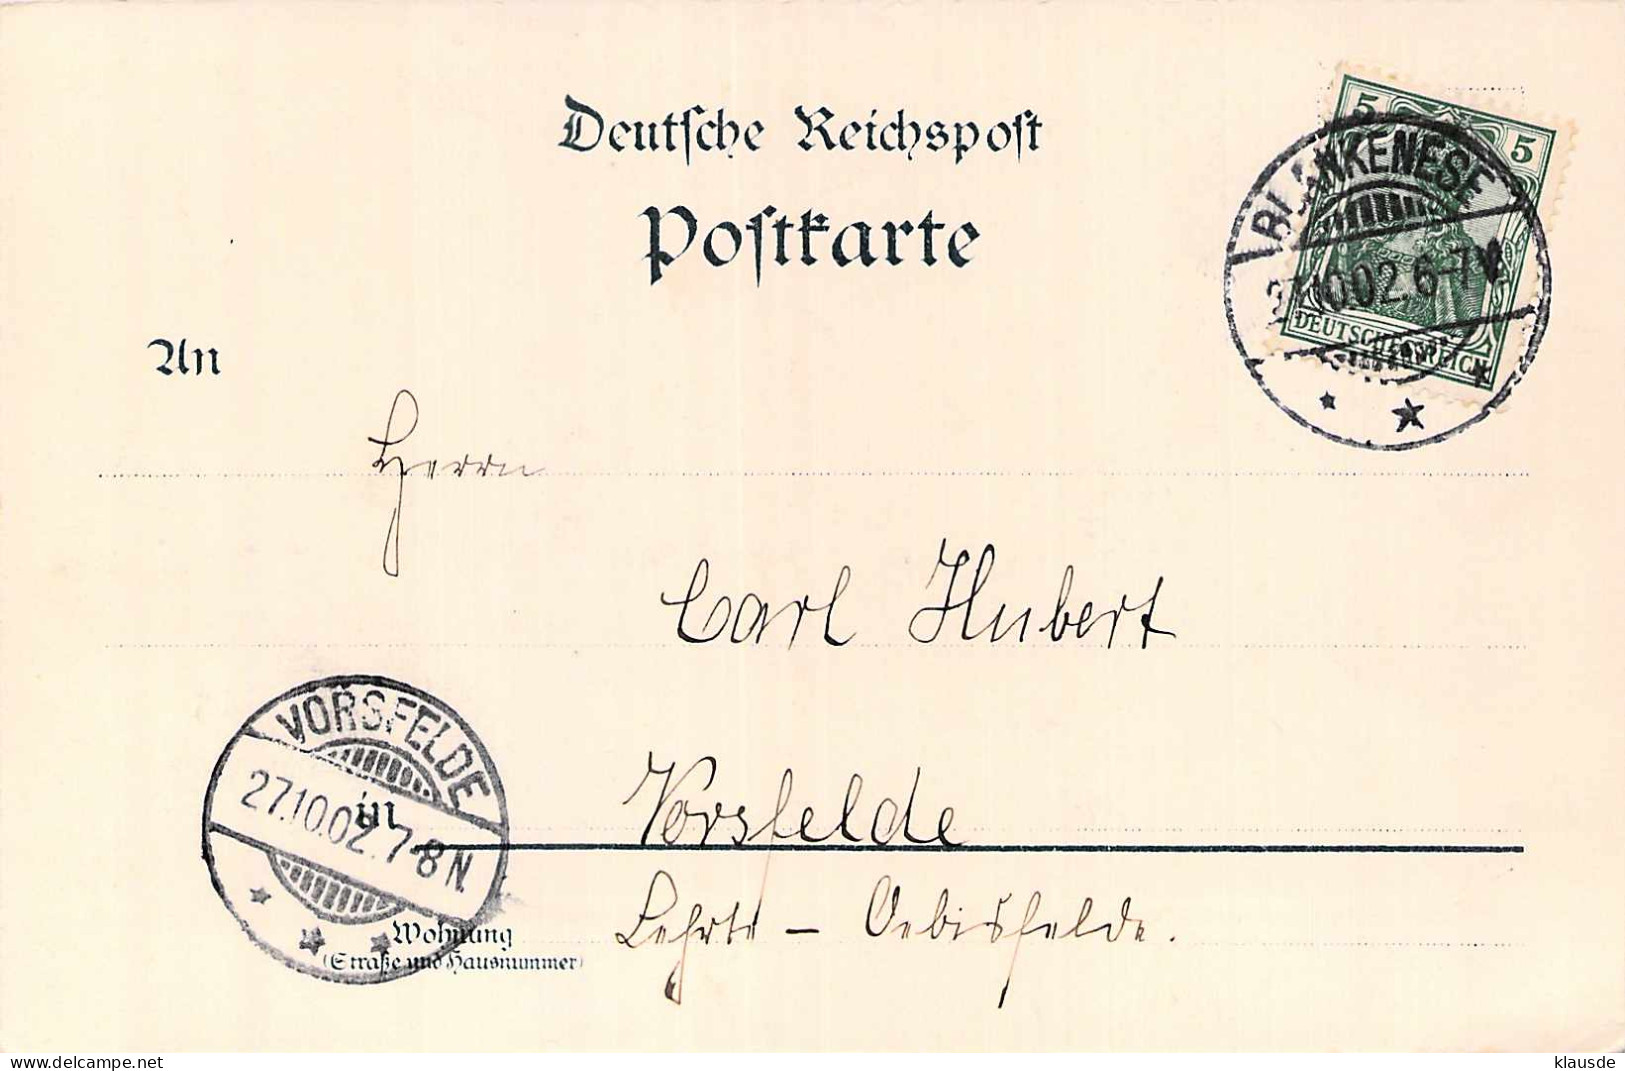 Deutsche Reichspost
Postkarte
5 5
DEUTSCHES REICH
BLANKENESE
10.02.6-7
An
Herrn
Carl Hubert
VORSFELDE
27.10.02.7-8N
in
Vorsfelde
Wohnung
(Straße und Hausnummer)
Lehrte - Oebisfelde.
www.delcampe.net
klausde